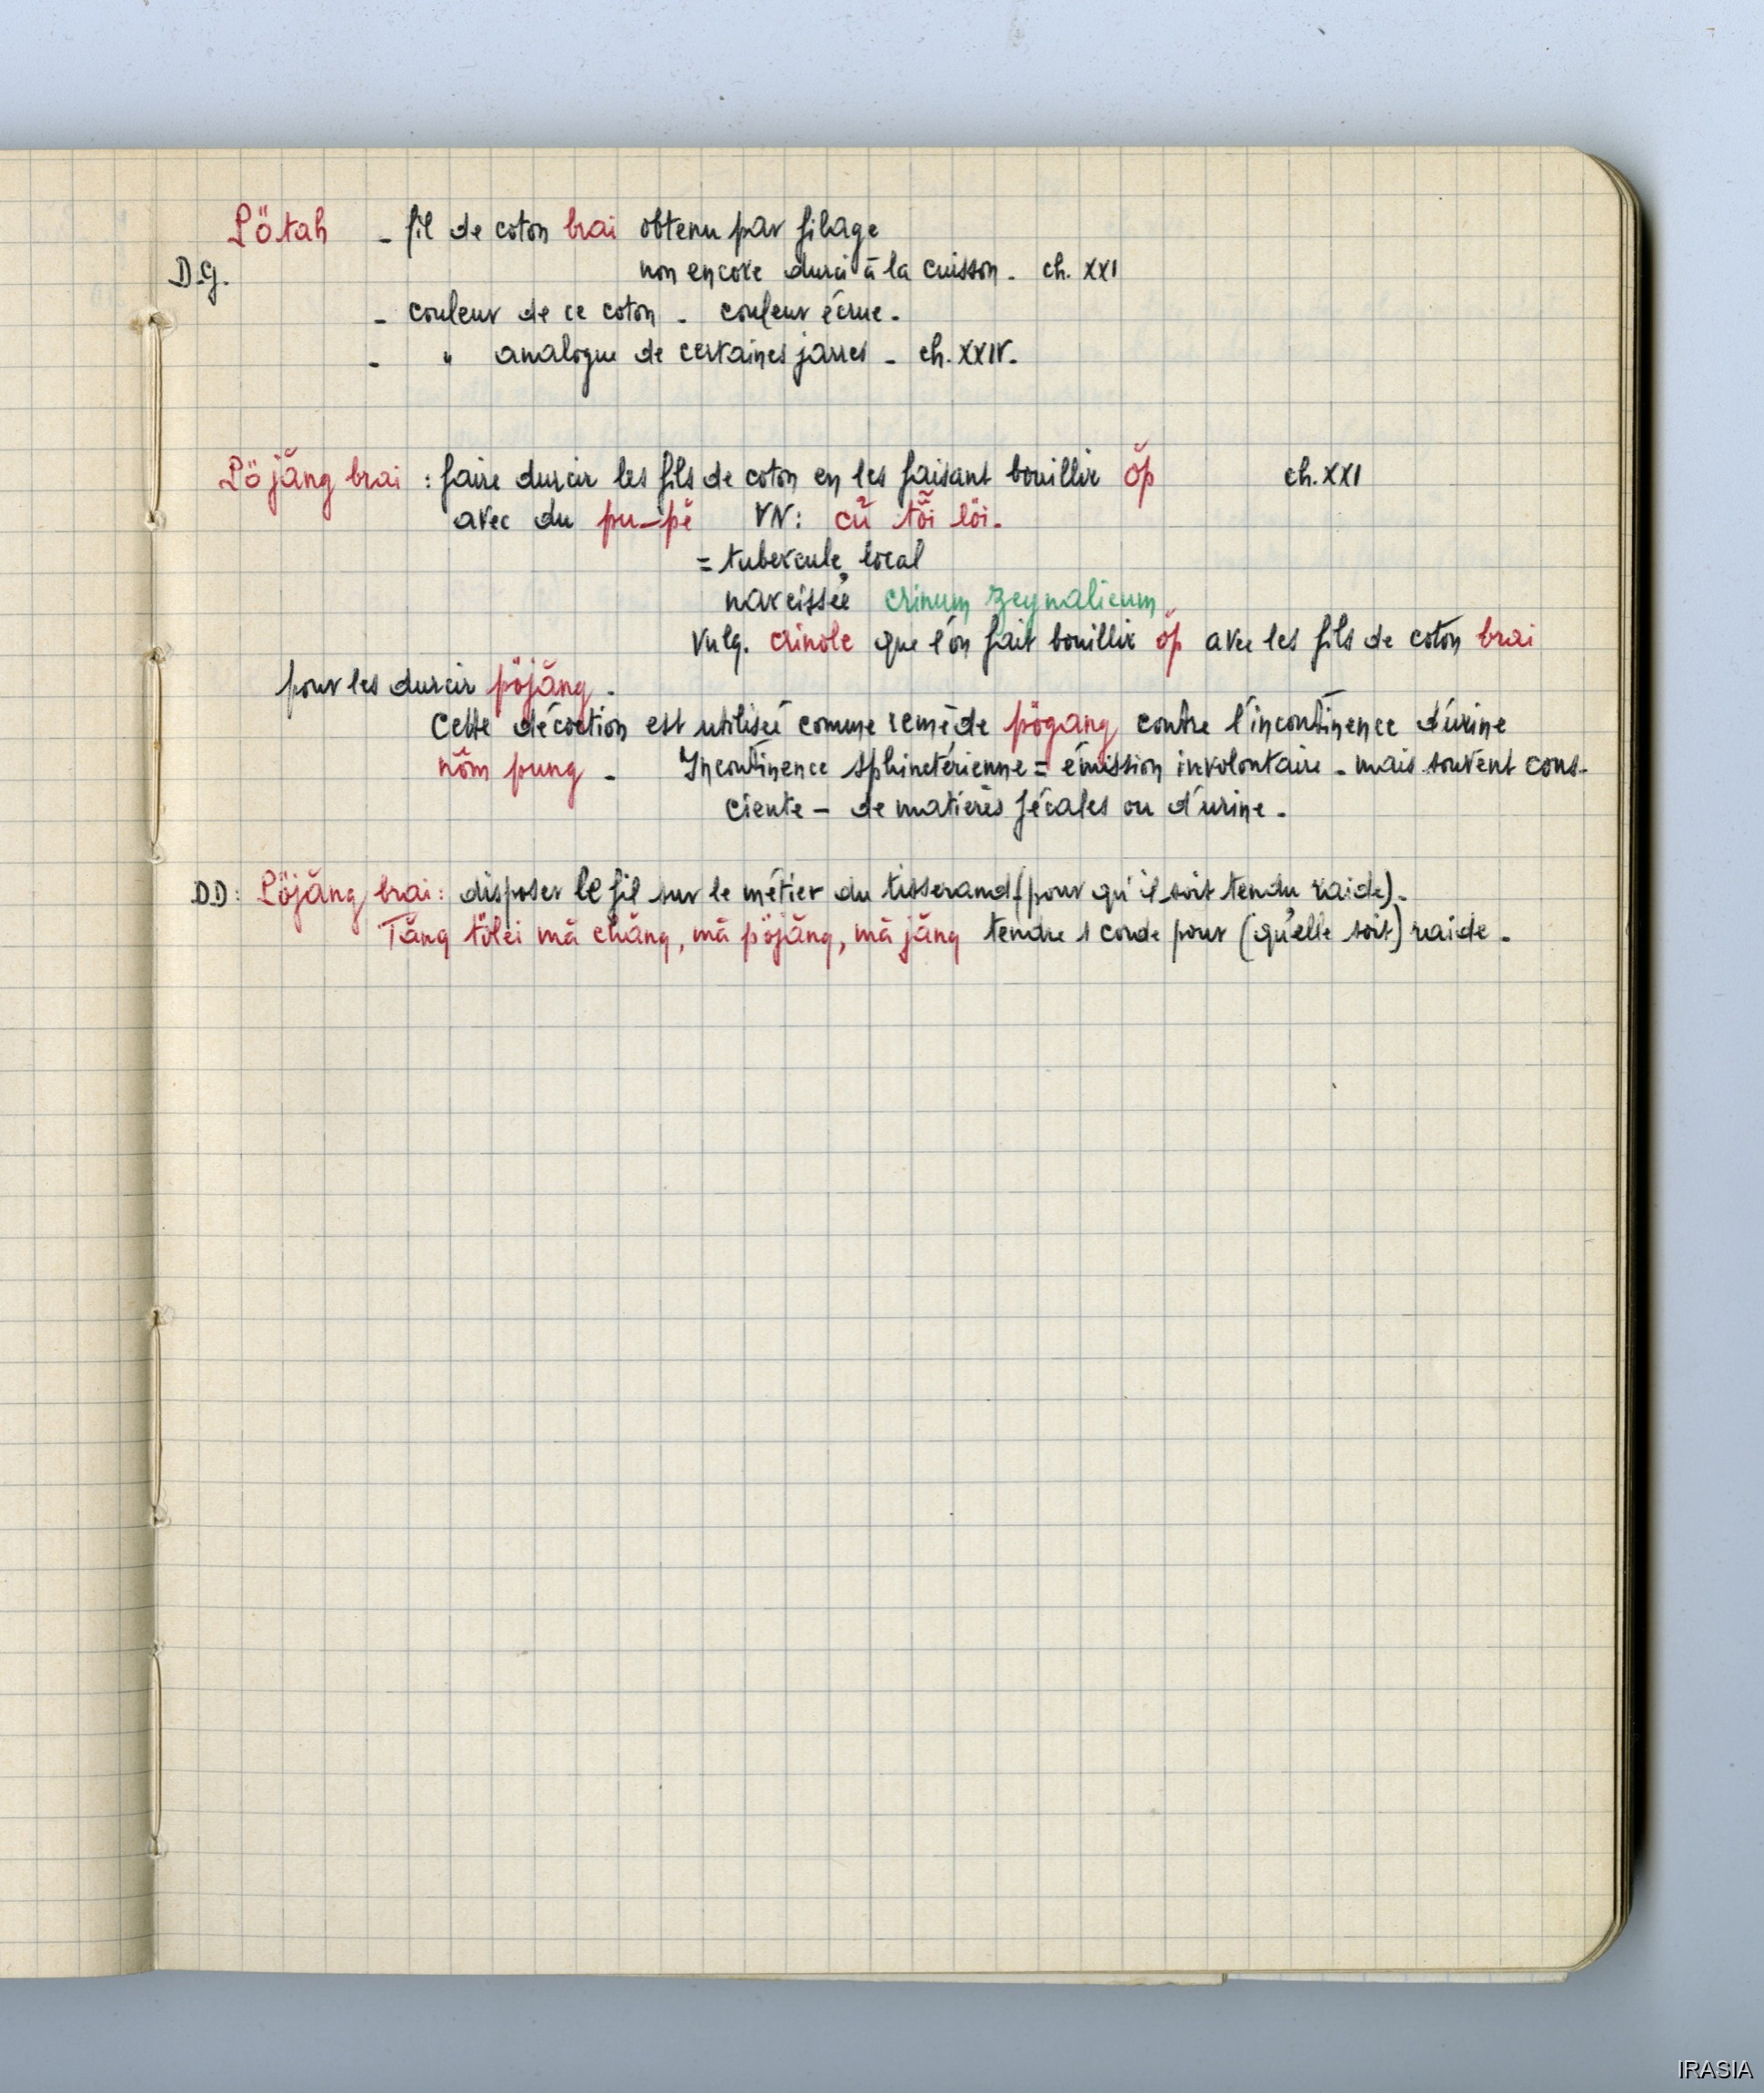 Pötah - fil de coton brai obtenu par filage
D.G. non encore durci à la cuisson - ch. XXI
- couleur de ce coton - couleur écrue -
- " analogue de certaines jarres - ch. XXIV -
Pöjăng brai : faire durcir les fils de coton en les faisant bouillir ŏp ch. XXI
avec du pu-pĕ VN: cŭ tỏi löi -
= tubercule local
narcissée crinum zeynalicum
Vulg. crinole que l'on fait bouillir ŏp avec les fils de coton brai
pour les durcir pöjăng -
Cette décoction est utilisée comme remède pögang contre l'incontinence d'urine
nŏm pung - Incontinence sphinctérienne = émission involontaire - mais souvent cons-
ciente - de matières fécales ou d'urine -
DD: Pöjăng brai : disposer le fil sur le métier du tisserand (pour qu'il soit tendu, raide) -
Tăng tölei mă chăng, mă pöjăng, mă jăng tendre 1 corde pour (qu'elle soit) raide -
IRASIA